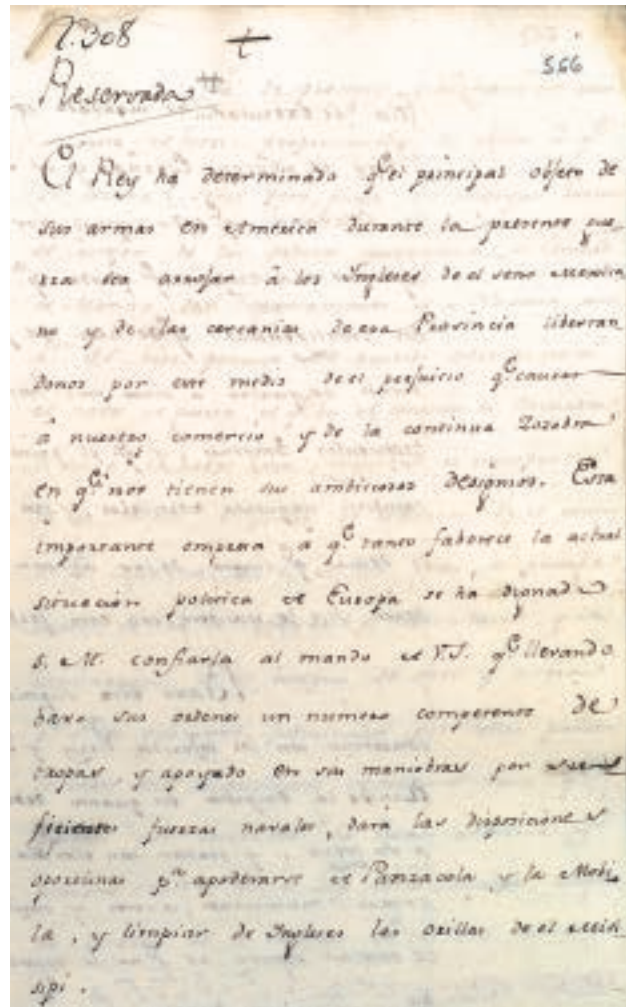 N.308
556
Reservada
El Rey ha determinado q.e el principal objeto de
sus armas en America durante la presente gue
rra sea arrojar á los Ingleses de el seno Mexica
no y de las cercanias de esa Provincia libertan
donos por este medio de el perjuicio q.e causan
á nuestro comercio, y de la continua Zozobra
en q.e nos tienen sus ambiciosos designios. Esta
importante empresa á q.e tanto faborece la actual
situación politica de Europa se há dignado
S. M. confiarla al mando de V.S. q.e llevando
baxo sus ordenes un numero competente de
tropas, y apoyado en sus maniobras por suf
ficientes fuerzas navales, dará las disposiciones
oportunas p.a apoderarse de Panzacola y la Mobi
la, y limpiar de Ingleses las orillas de el Misi
sipi.